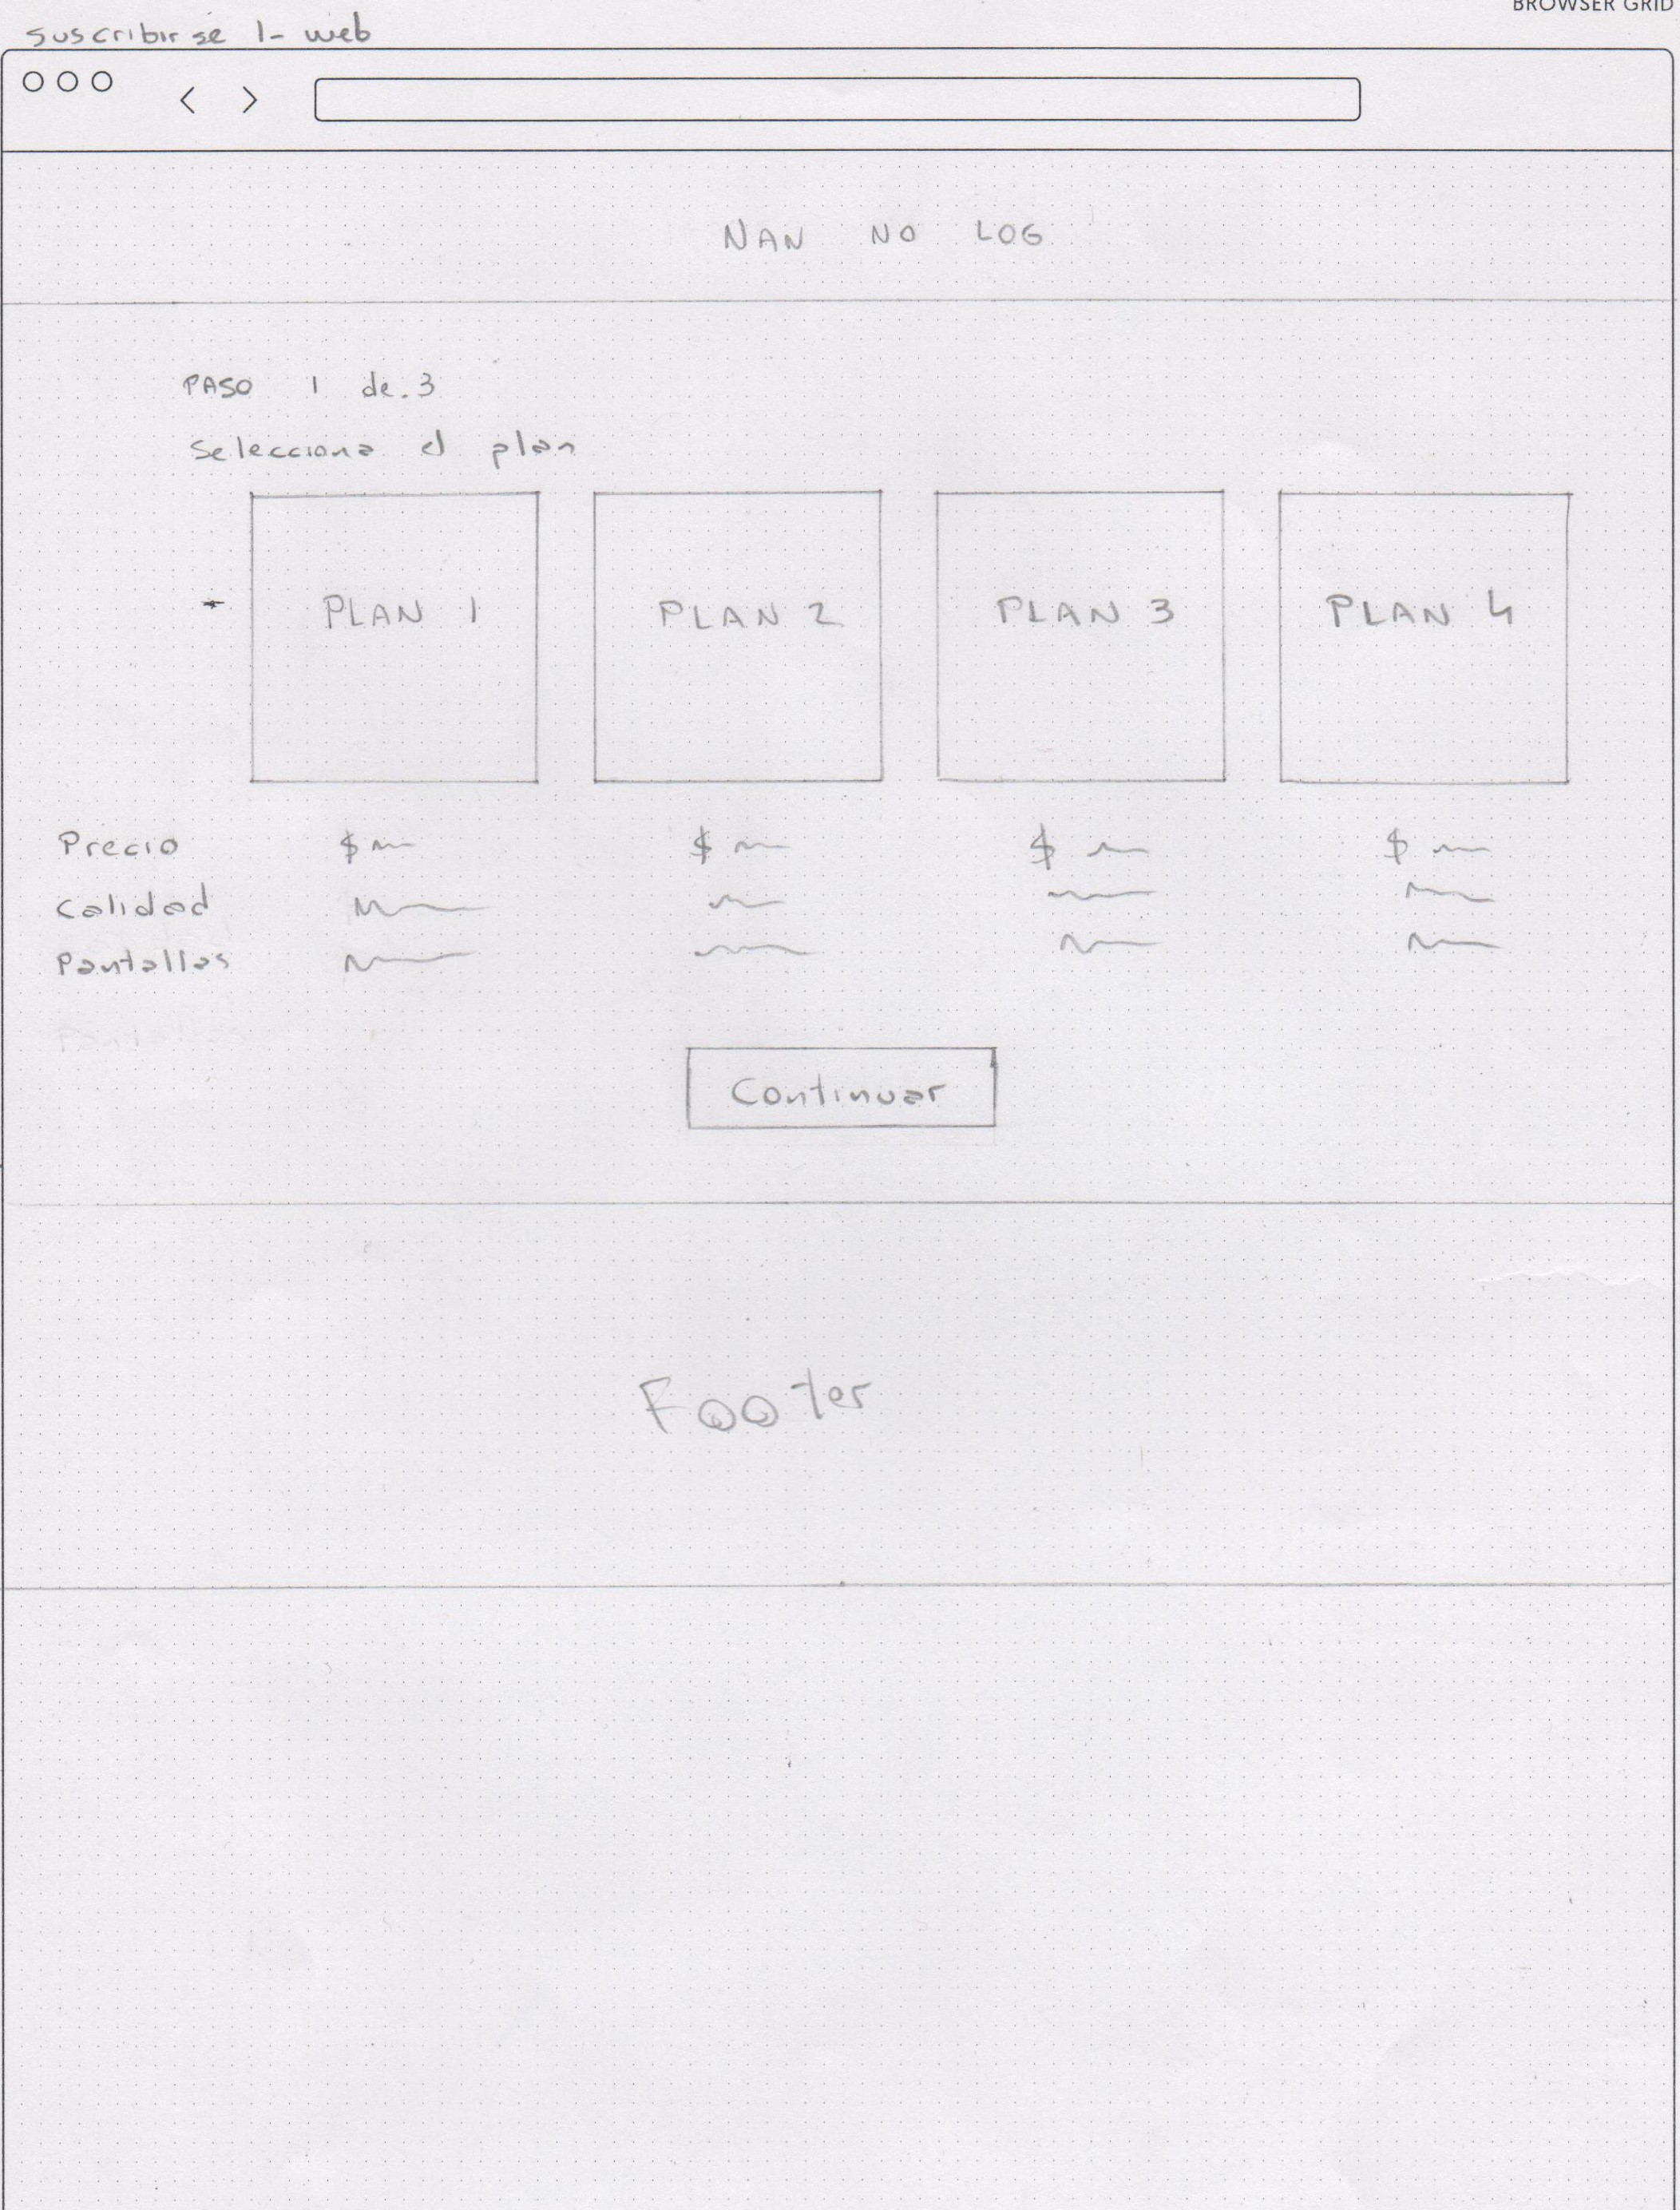 BROWSER GRID
suscribirse 1- web
NAN NO LOG
PASO 1 de 3
Selecciona el plan
PLAN 1 PLAN 2 PLAN 3 PLAN 4
Precio $ $ $ $
Calidad
Pantallas
Continuar
Footer